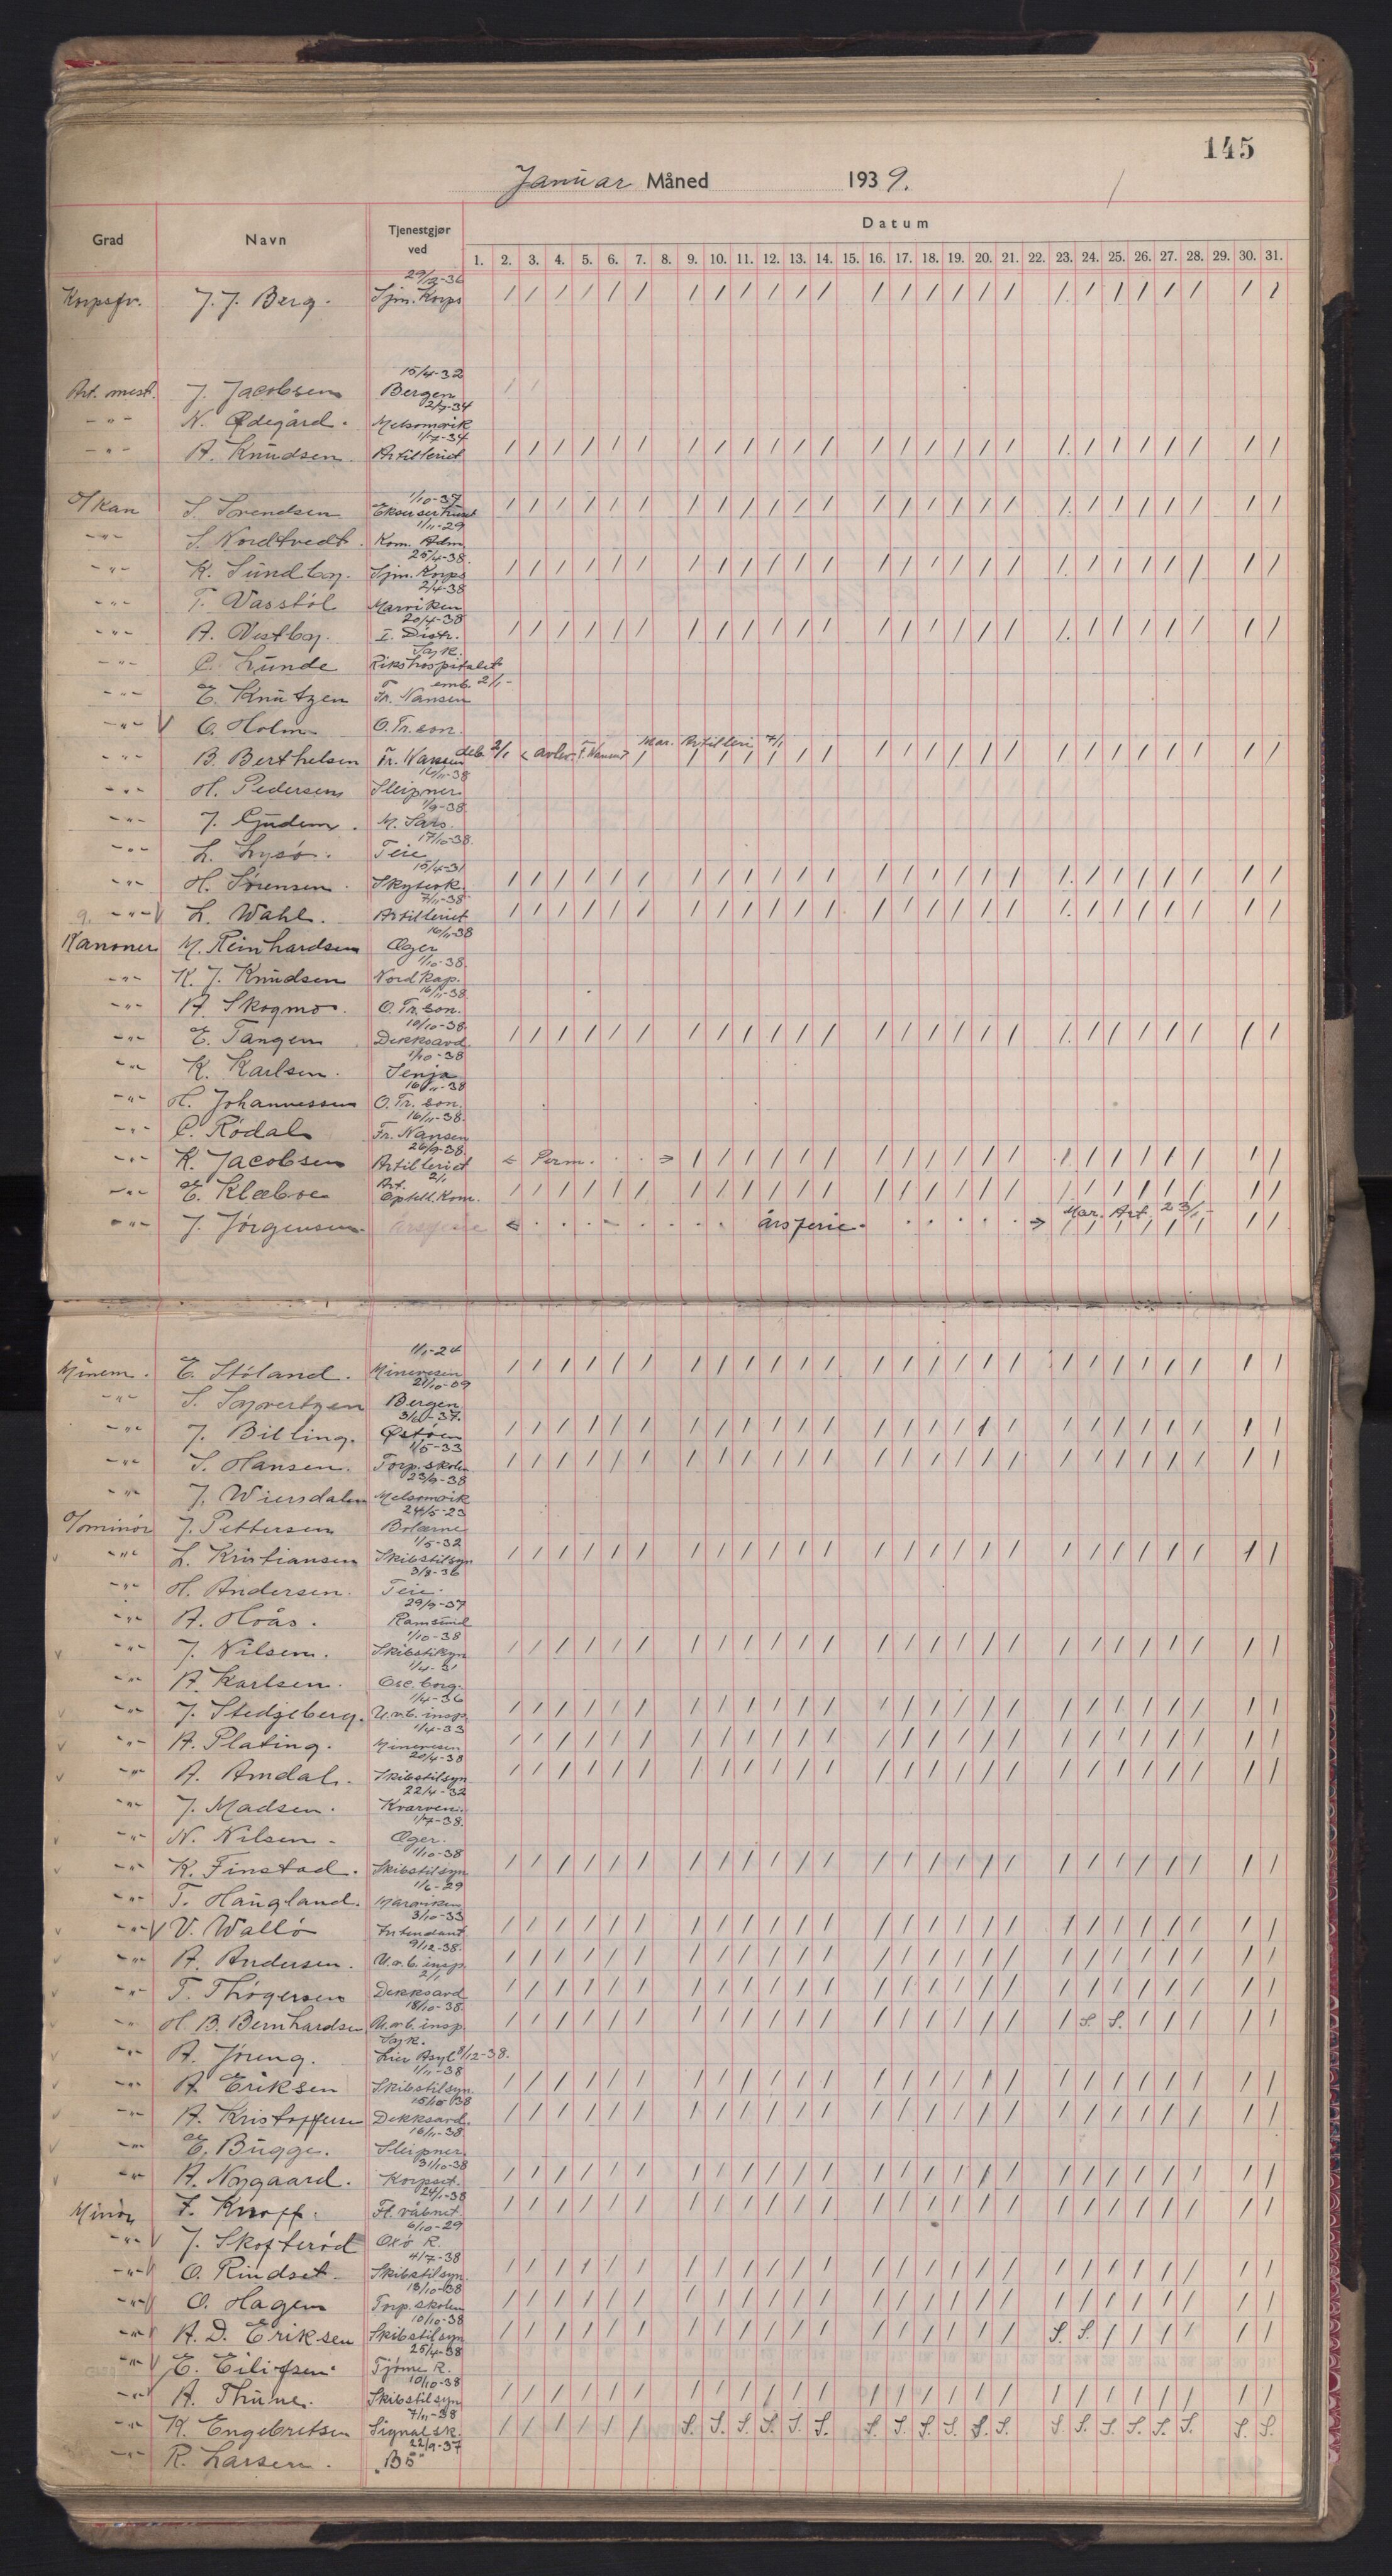 145
Januar Måned 1939.
Grad Navn Tjenestgjør ved Datum
1. 2. 3. 4. 5. 6. 7. 8. 9. 10. 11. 12. 13. 14. 15. 16. 17. 18. 19. 20. 21. 22. 23. 24. 25. 26. 27. 28. 29. 30. 31.
29/12-36
Korpsfv. J. J. Berg. Sjm. Korps / / / / / / / / / / / / / / / / / / / / / / / / / /
15/4-32
Art. mest. J. Jacobsen Bergen / /
2/7-34
-"- N. Ødegård. Melsomvik
1/7-34
-"- A. Knudsen. Artilleriet / / / / / / / / / / / / / / / / / / / / / / / / / /
1/10-37
O/kan S. Svendsen Ekserserhuset / / / / / / / / / / / / / / / / / / / / / / / / / /
1/11-29
-"- S. Nordtvedt. Kom. Adm.
25/4-38.
-"- K. Sundby. Sjm. Korps / / / / / / / / / / / / / / / / / / / / / / / / / /
2/4-38
-"- T. Vasstöl Marviken
20/4-38
-"- A. Vestby. I. Distr. / / / / / / / / / / / / / / / / / / / / / / / / / /
Syk.
-"- C. Lunde Rikshospitalet
emb. 2/1-
-"- E. Knutzen Fr. Nansen
-"- V O. Holm O. Tr.son.
-"- B. Berthelsen Fr. Nansen deb. 2/1 < avlev. F. Nansen> Mar. Artilleri 7/1 / / / / / / / / / / / / / / / / / / / / /
16/11-38
-"- H. Pedersen Sleipner
1/9-38.
-"- J. Gjudem. M. Sars.
17/10-38.
-"- L. Lysö. Teie
15/4-31
-"- H. Sørensen. Skyterk. / / / / / / / / / / / / / / / / / / / / / / / / / /
7/11-38
-"- V L. Wahl. Artilleriet / / / / / / / / / / / / / / / / / / / / / / / / / /
16/11-38
Kanoner M. Reinhardsen Æger
1/10-38.
-"- K. J. Knudsen Nordkap.
16/11-38.
-"- A. Skogmo. O. Tr. son.
10/10-38.
-"- E. Tangen. Dekksavd. / / / / / / / / / / / / / / / / / / / / / / / / / /
1/10-38
-"- K. Karlsen. Senja
16/11-38
-"- H. Johannessen O. Tr. son.
16/11-38.
-"- C. Rödal Fr. Nansen
26/9-38.
-"- K. Jacobsen Artilleriet < Perm. . . > / / / / / / / / / / / / / / / / / / / /
Art. 2/1
-"- E. Klæboe Opkl. Kom. / / / / / / / / / / / / / / / / / / / / / / / / / /
-"- J. Jörgensen. årsferie < . . . . . årsferie. . . . . . > Mar. Art. 23/1- / / / / / / / /
1/1-24
Minem. E. Stöland. Minevesen / / / / / / / / / / / / / / / / / / / / / / / / / /
21/10-09
-"- S. Syvertzen Bergen.
3/6-37.
-"- J. Billing. Østöen / / / / / / / / / / / / / / / / / / / / / / / / / /
1/5-33
-"- S. Hansen. Torp. skolen / / / / / / / / / / / / / / / / / / / / / / / / / /
23/9-38
-"- J. Wiersdalen Melsomvik
24/5-23
O/minör J. Pettersen Bolærne
1/5-32
-"- L. Kristiansen Skibstilsyn / / / / / / / / / / / / / / / / / / / / / / / / / /
3/8-36
-"- H. Andersen. Teie.
29/9-37
-"- A. Hoås. Ramsund
1/10-38
-"- J. Nilsen. Skibstilsyn / / / / / / / / / / / / / / / / / / / / / / / / / /
1/4-31
-"- A. Karlsen. Osc. borg.
1/4-36
-"- J. Stedjeberg. U.v.b. insp. / / / / / / / / / / / / / / / / / / / / / / / / / /
1/4-33
-"- A. Plating. Minevesen / / / / / / / / / / / / / / / / / / / / / / / / / /
20/4-38
-"- A. Amdal. Skibstilsyn / / / / / / / / / / / / / / / / / / / / / / / / / /
22/4-32
-"- J. Madsen. Kvarven.
1/7-38.
-"- N. Nilsen. Æger.
1/10-38
-"- K. Finstad. Skibstilsyn / / / / / / / / / / / / / / / / / / / / / / / / / /
1/6-29
-"- T. Haugland. Marviken
3/10-33
-"- V V. Wallö Intendant / / / / / / / / / / / / / / / / / / / / / / / / / /
9/12-38.
-"- A. Andersen. U.v.b. insp. / / / / / / / / / / / / / / / / / / / / / / / / / /
2/1
-"- T. Thögersen Dekksavd / / / / / / / / / / / / / / / / / / / / / / / / / /
18/10-38.
-"- H. B. Bernhardsen U.v.b. insp. / / / / / / / / / / / / / / / / / / / S. S. / / / / /
Syk.
-"- A. Jöreng. Lier Asyl 8/12-38.
1/11-38
-"- A. Eriksen Skibstilsyn. / / / / / / / / / / / / / / / / / / / / / / / / / /
15/10-38
-"- A. Kristoffersen Dekksavd. / / / / / / / / / / / / / / / / / / / / / / / / / /
16/11-38.
-"- E. Bugge. Sleipner.
31/10-38
-"- A. Nygaard. Korpset. / / / / / / / / / / / / / / / / / / / / / / / / / /
24/1-38
Minör F. Knoff. Fl. våbnet. / / / / / / / / / / / / / / / / / / / / / / / / / /
6/10-29
-"- V J. Skofteröd Oxö R.
4/7-38
-"- O. Rindset. Skibstilsyn. / / / / / / / / / / / / / / / / / / / / / / / / / /
18/10-38
-"- O. Hagen Torp. skolen / / / / / / / / / / / / / / / / / / / / / / / / / /
10/10-38
-"- A. D. Eriksen Skibstilsyn / / / / / / / / / / / / / / / / / / S. S. / / / / / /
25/4-38
-"- V E. Eilifsen. Tjöme R.
10/10-38
-"- A. Thune. Skibstilsyn / / / / / / / / / / / / / / / / / / / / / / / / / /
7/11-38
-"- K. Engebretsen Signalsk. / / / / / / S. S. S. S. S. S. S. S. S. S. S. S. S. S. S. S. S. S. S. S.
22/9-37
-"- R. Larsen. "B5"